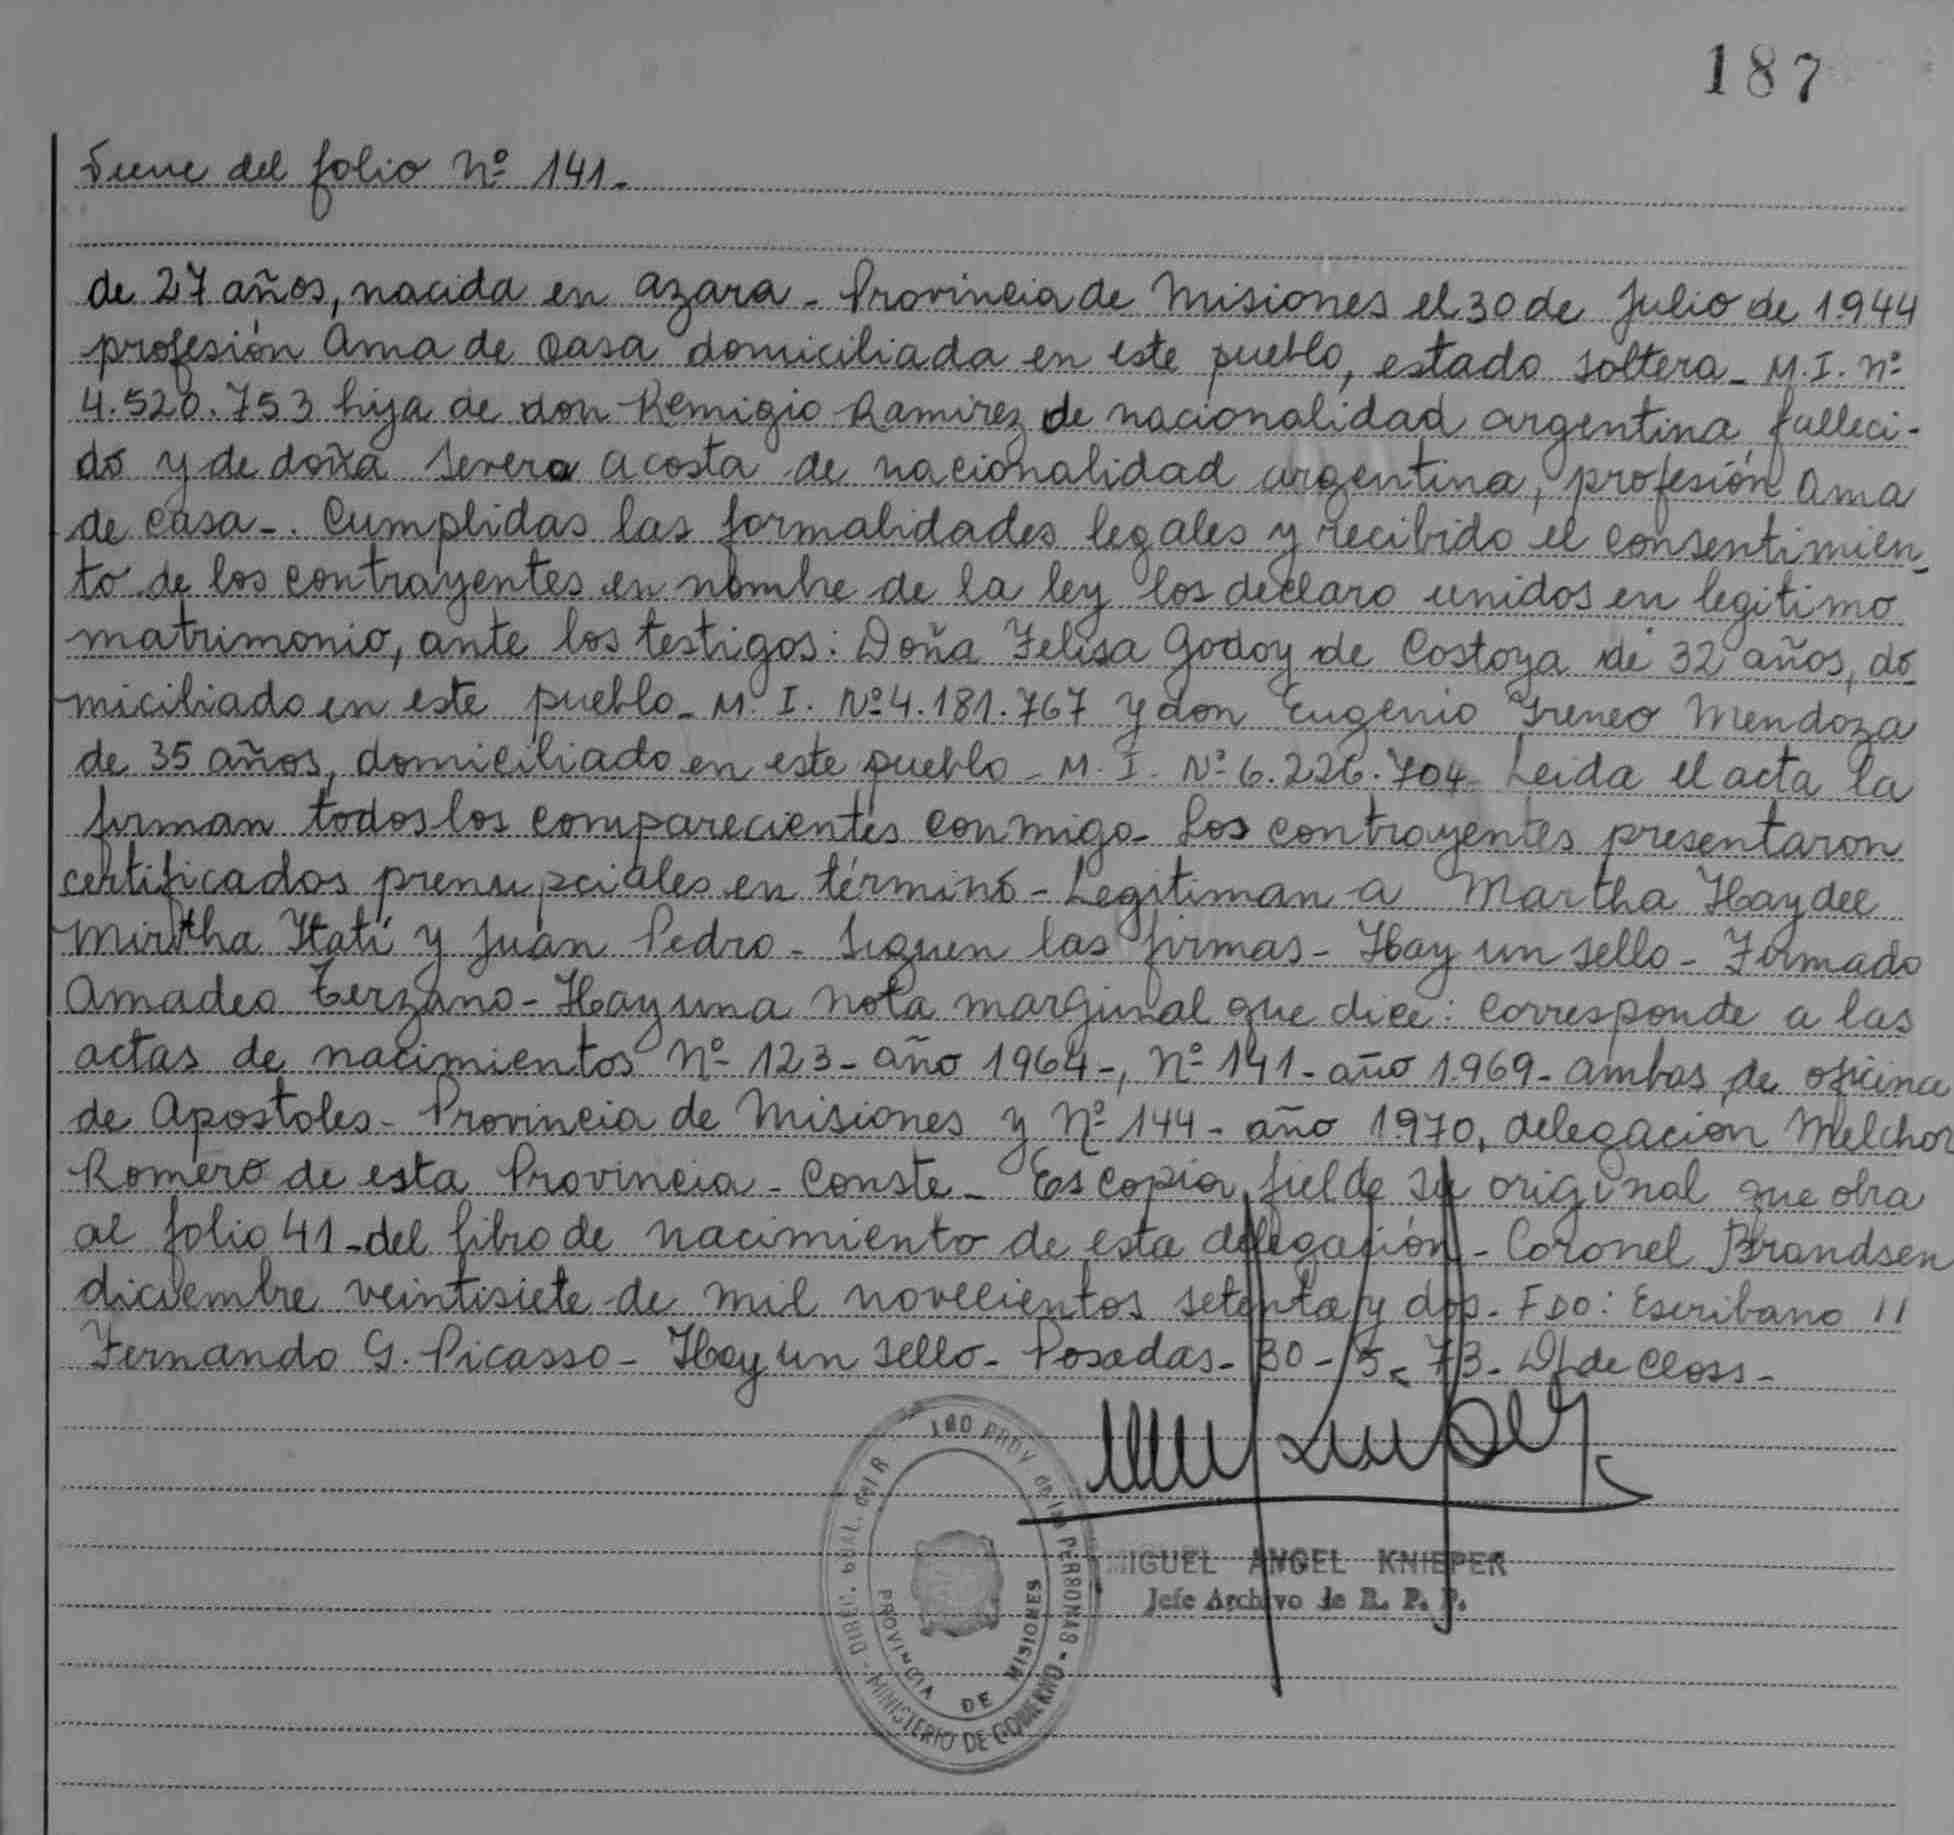 187
Viene del folio Nº 141.-
de 27 años, nacida en Azara - Provincia de Misiones el 30 de Julio de 1944
profesión Ama de casa domiciliada en este pueblo, estado soltera - M.I. Nº
4.520.753 hija de don Remigio Ramirez de nacionalidad argentina, falleci-
do y de doña Severa Acosta de nacionalidad argentina, profesión Ama
de casa -. Cumplidas las formalidades legales y recibido el consentimien-
to de los contrayentes en nombre de la ley los declaro unidos en legitimo
matrimonio, ante los testigos: Doña Felisa Godoy de Costoya de 32 años, do-
miciliado en este pueblo - M.I. Nº 4.181.767 y don Eugenio Ireneo Mendoza
de 35 años, domiciliado en este pueblo - M.I. Nº 6.226.704 - Leida el acta la
firman todos los comparecientes conmigo - Los contrayentes presentaron
certificados prenupciales en términó - Legitiman a Martha Haydee
Mirtha Itatí y Juan Pedro - Siguen las firmas - Hay un sello - Firmado
Amadeo Terzano - Hay una nota marginal que dice: Corresponde a las
actas de nacimientos Nº 123 - año 1964 -, Nº 141 - año 1.969 - ambas de oficina
de Apostoles - Provincia de Misiones y Nº 144 - año 1970, delegación Melchor
Romero de esta Provincia - Conste - Es copia fiel de su original que obra
al folio 41 - del libro de nacimiento de esta delegación - Coronel Brandsen
diciembre veintisiete de mil novecientos setenta y dos - FDO: Escribano //
Fernando G. Picasso - Hay un sello - Posadas - 30 - 5 - 73 - de Closs -
MIGUEL ANGEL KNIEPER
Jefe Archivo de R. P. P.
DIREC. GRAL. del R PROV de las PERSONAS - MINISTERIO DE GOBIERNO
PROVINCIA DE MISIONES